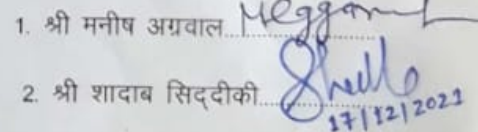 1. श्री मनीष अग्रवाल..............
2. श्री शादाब सिद्दीकी..............
17/12/2021